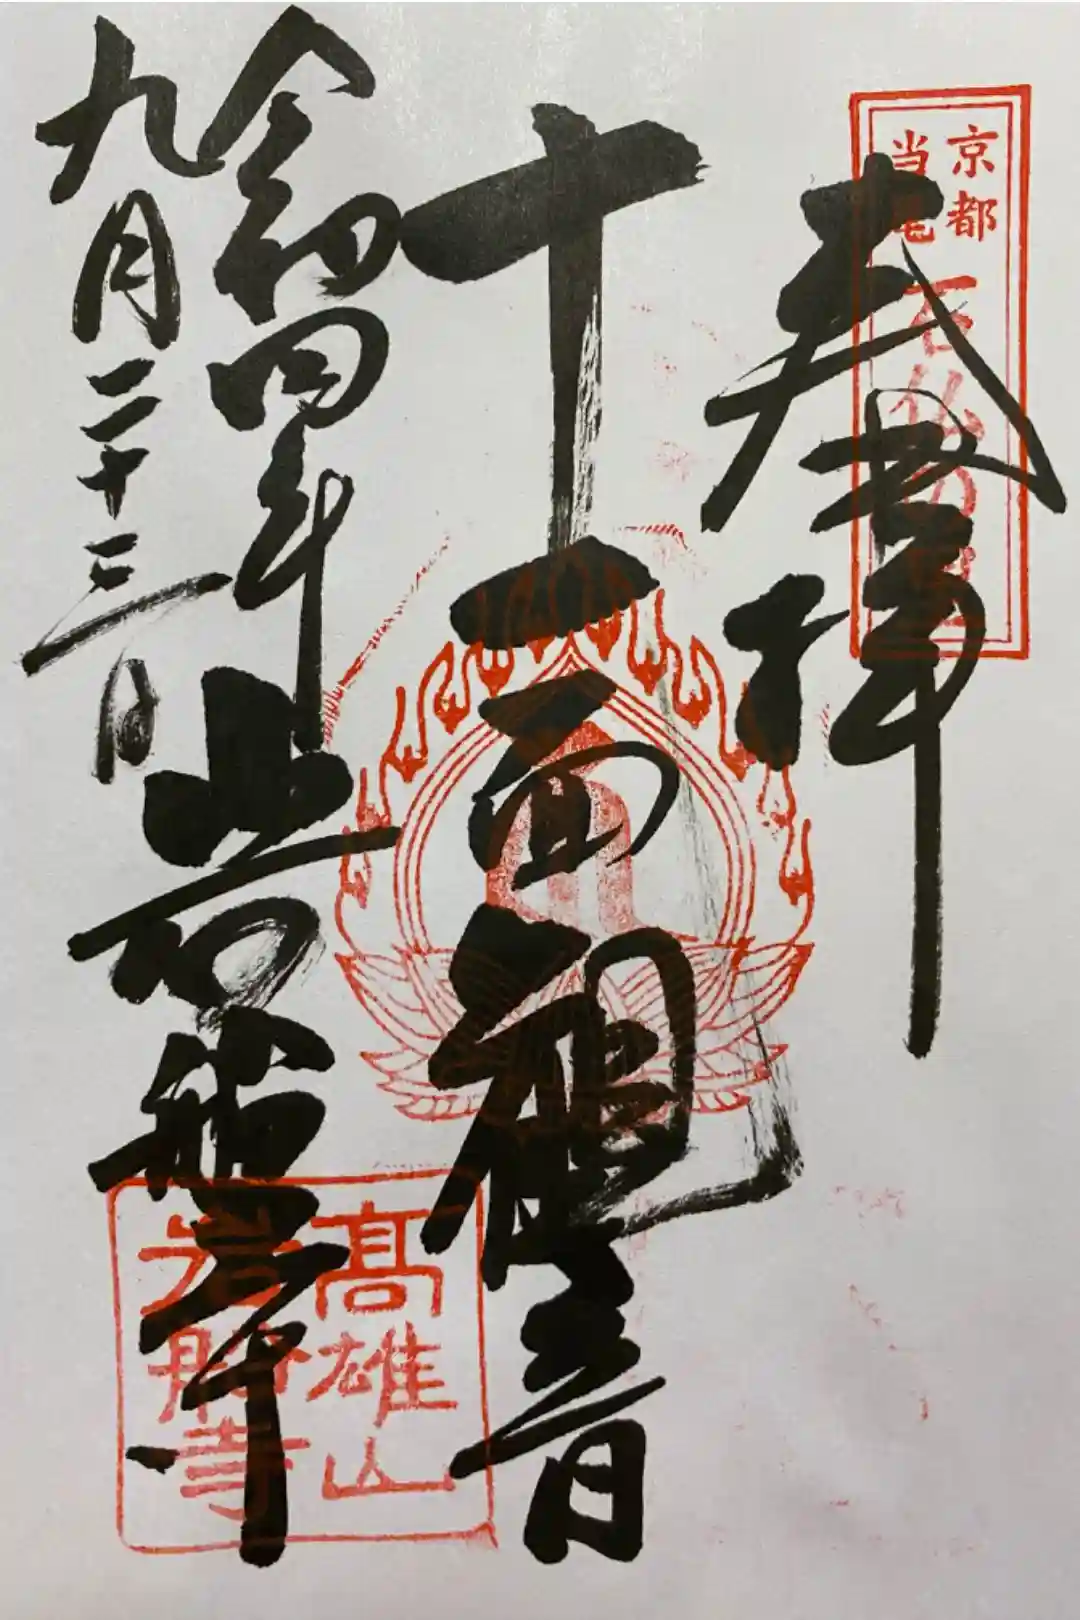 京都
当尾
石仏の里
奉拝
十一面観音
令和四年
九月二十三日
岩船寺
高雄山
岩船寺